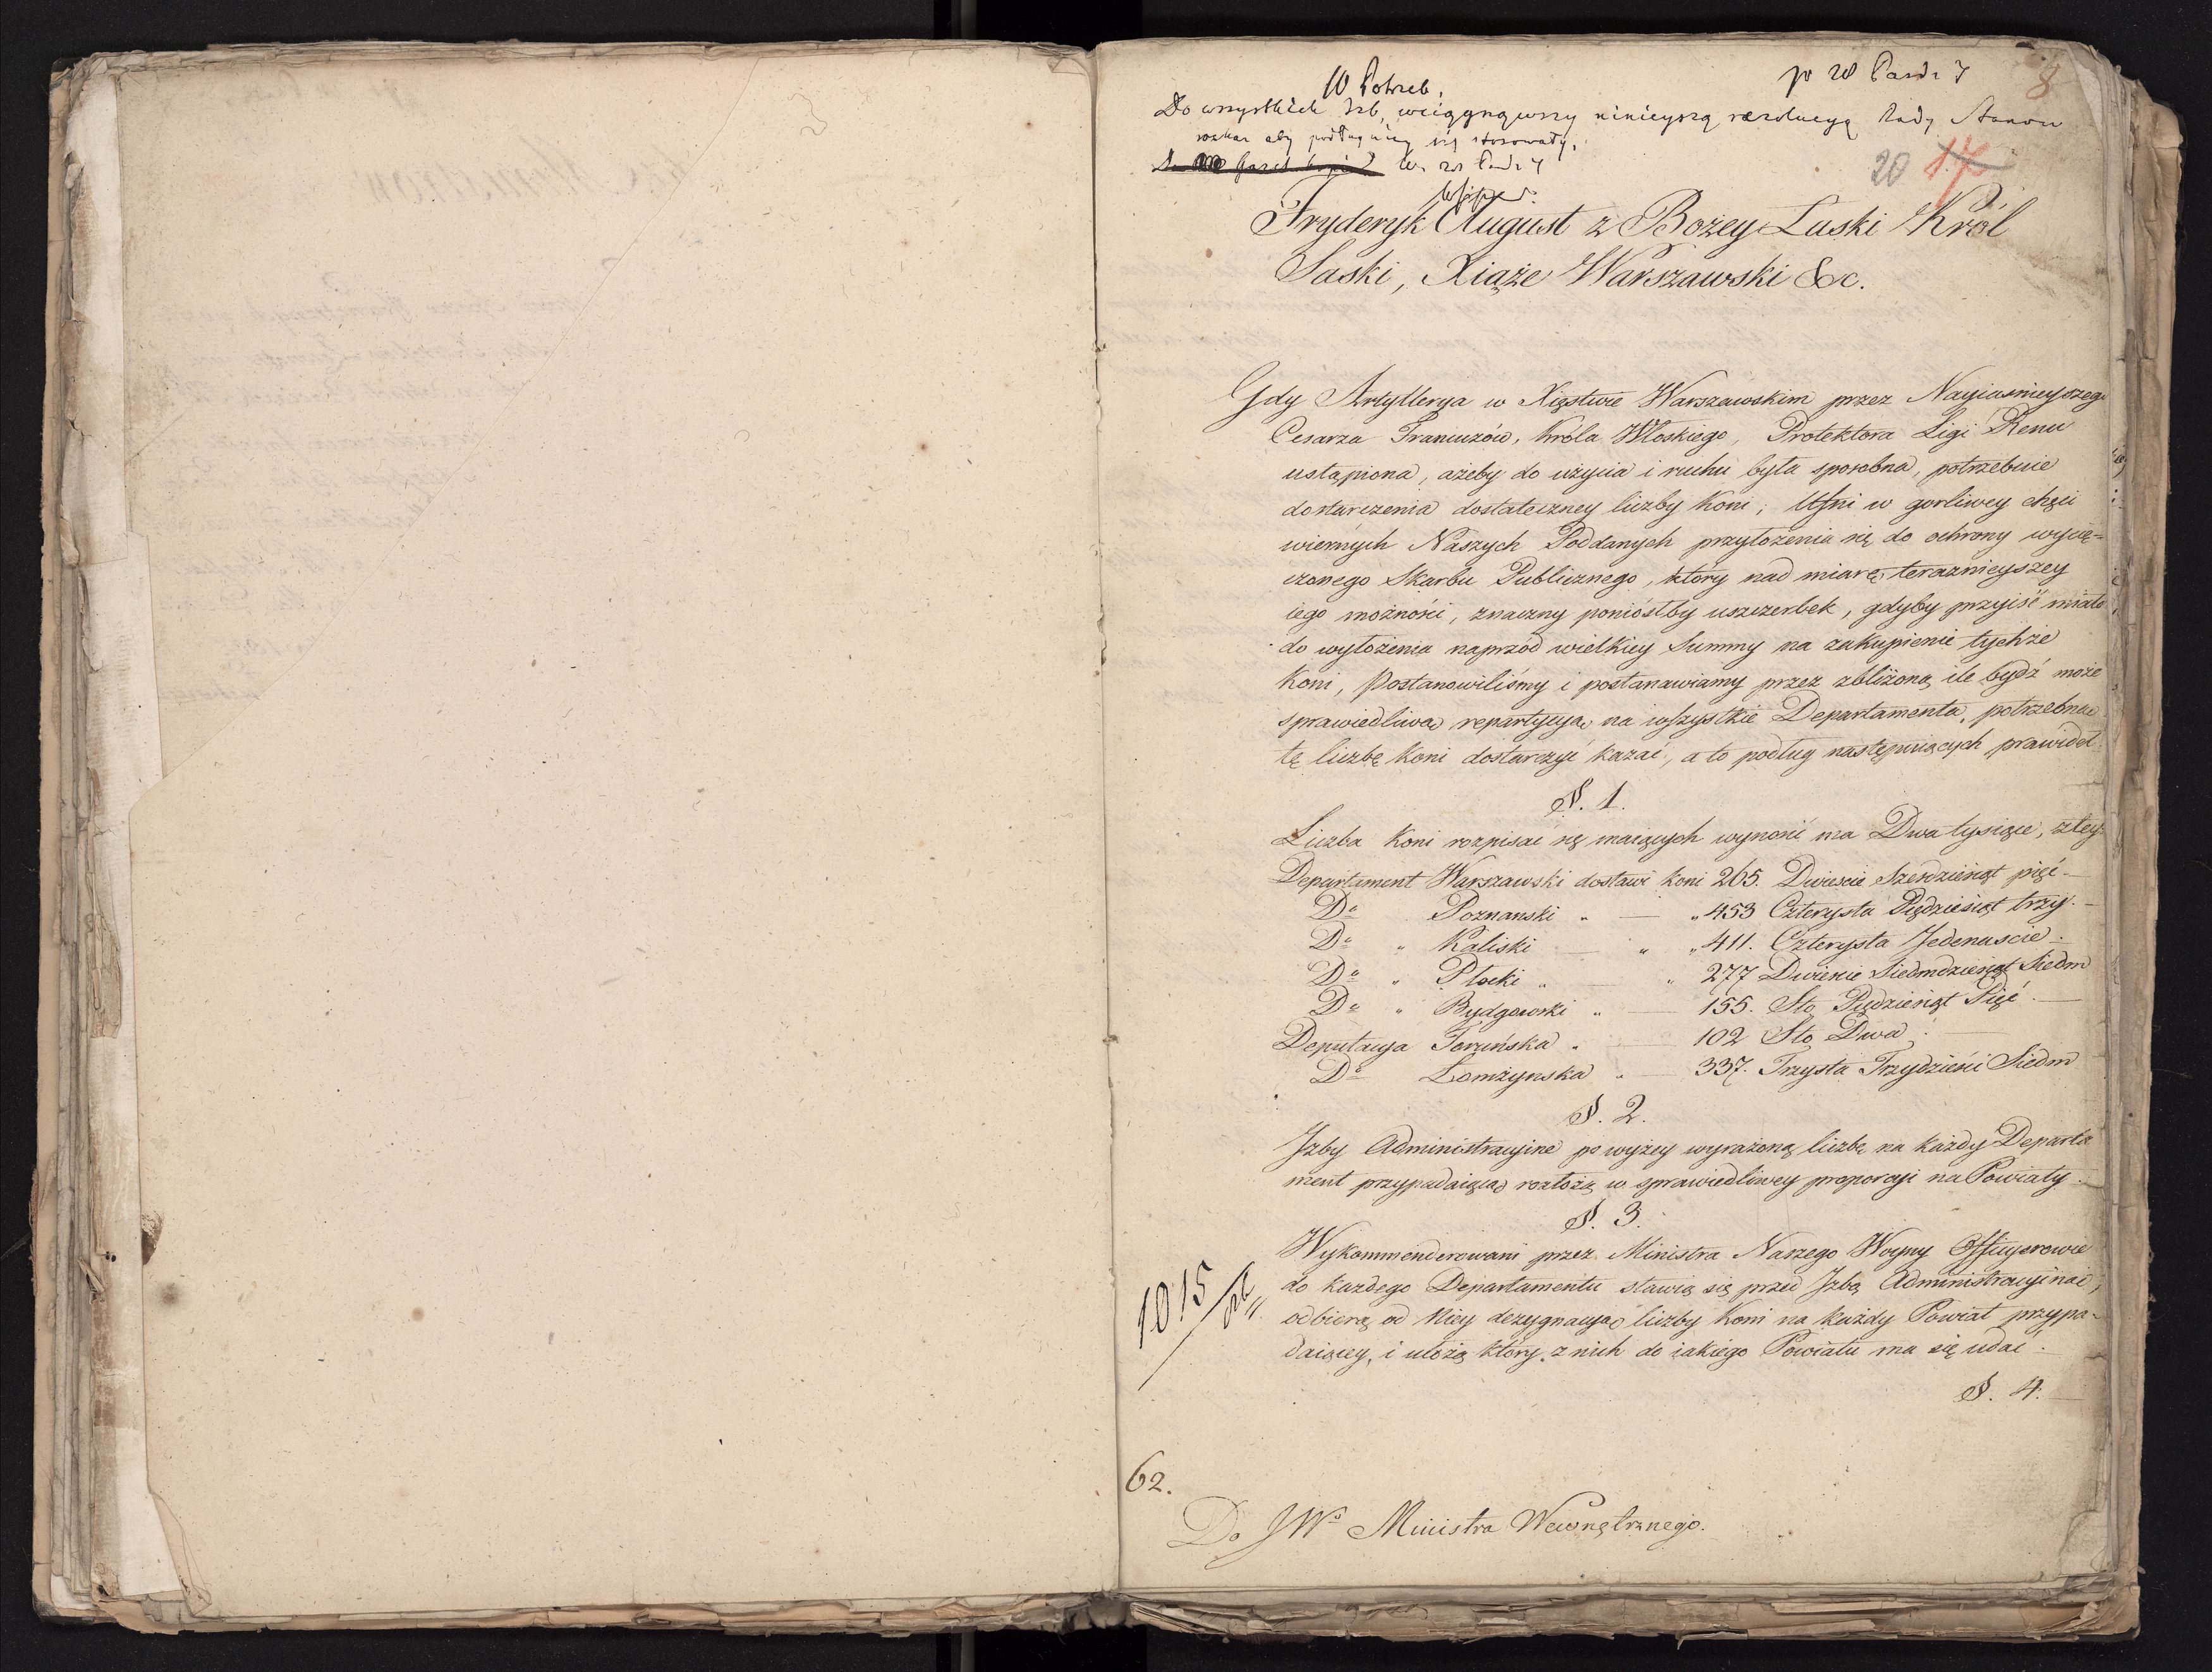 10 Potrzeb.
8
Do wszystkich Izb, wciągnąwszy ninieyszą rezolucyą Rady Stanu
nakaz aby podług niey się stosowały.
20 17
Fryderyk August z Bożey Łaski Król
Saski, Xiąże Warszawski &c.
Gdy Artyllerya w Xięstwie Warszawskim przez Nayiaśnieyszego
Cesarza Francuzów, Króla Włoskiego, Protektora Ligi Renu
ustąpiona, ażeby do użycia i ruchu była sposobna, potrzebuie
dostarczenia dostateczney liczby Koni; Ufni w gorliwey chęci
wiernych Naszych Poddanych przyłożenia się do ochrony wycię-
czonego Skarbu Publicznego, który nad miarę teraznieyszey
iego możności, znaczny poniósłby uszczerbek, gdyby przyiść miało
do wyłożenia naprzód wielkiey Summy na zakupienie tychże
Koni, Postanowiliśmy i postanawiamy przez zbliżoną ile bydź może
sprawiedliwą repartycyą na wszystkie Departamenta, potrzebną
tę liczbę Koni dostarczyć kazać, a to podług następuiących prawideł
§. 1.
Liczba Koni rozpisać się maiących wynosić ma Dwa tysiące, z tey
Departament Warszawski dostawi koni 265. Dwieście Sześdziesiąt pięć. —
Do Poznanski „ — „ 453 Czterysta Piędziesiąt trzy. —
Do „ Kaliski — „ „ 411. Czterysta Jedenaście.
Do „ Płocki „ — „ 277 Dwieście Siedmdziesiąt Siedm
Do „ Bydgowski „ — 155. Sto Piędziesiąt Pięć. —
Deputacya Toruńska „ — 102 Sto Dwa. —
Do Łomżynska „ — 337. Trzysta Trzydzieści Siedm
§. 2.
Jzby Administracyine powyżey wyrażoną liczbę na każdy Departa
ment przypadaiącą rozłożą w sprawiedliwey proporcyi na Powiaty.
§. 3.
Wykommenderowani przez Ministra Naszego Woyny Officyerowie
do każdego Departamentu stawią się przed Jzbą Administracyiną,
odbiorą od Niey dezygnacyą liczby Koni na każdy Powiat przypa-
daiącey, i ułożą który z nich do iakiego Powiatu ma się udać.
1015
§. 4.
62.
Do JWo Ministra Wewnętrznego.